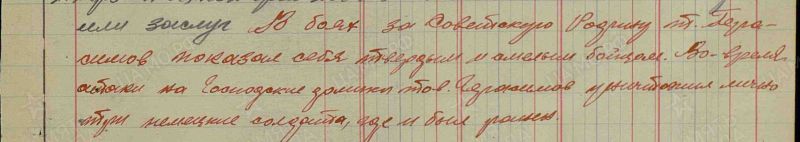 или заслуг В боях за Советскую Родину т. Гера-
симов показал себя твердым и смелым бойцом. Во-время
атаки на Господские домики тов. Герасимов уничтожил лично
три немецкие солдата, где и был ранен.